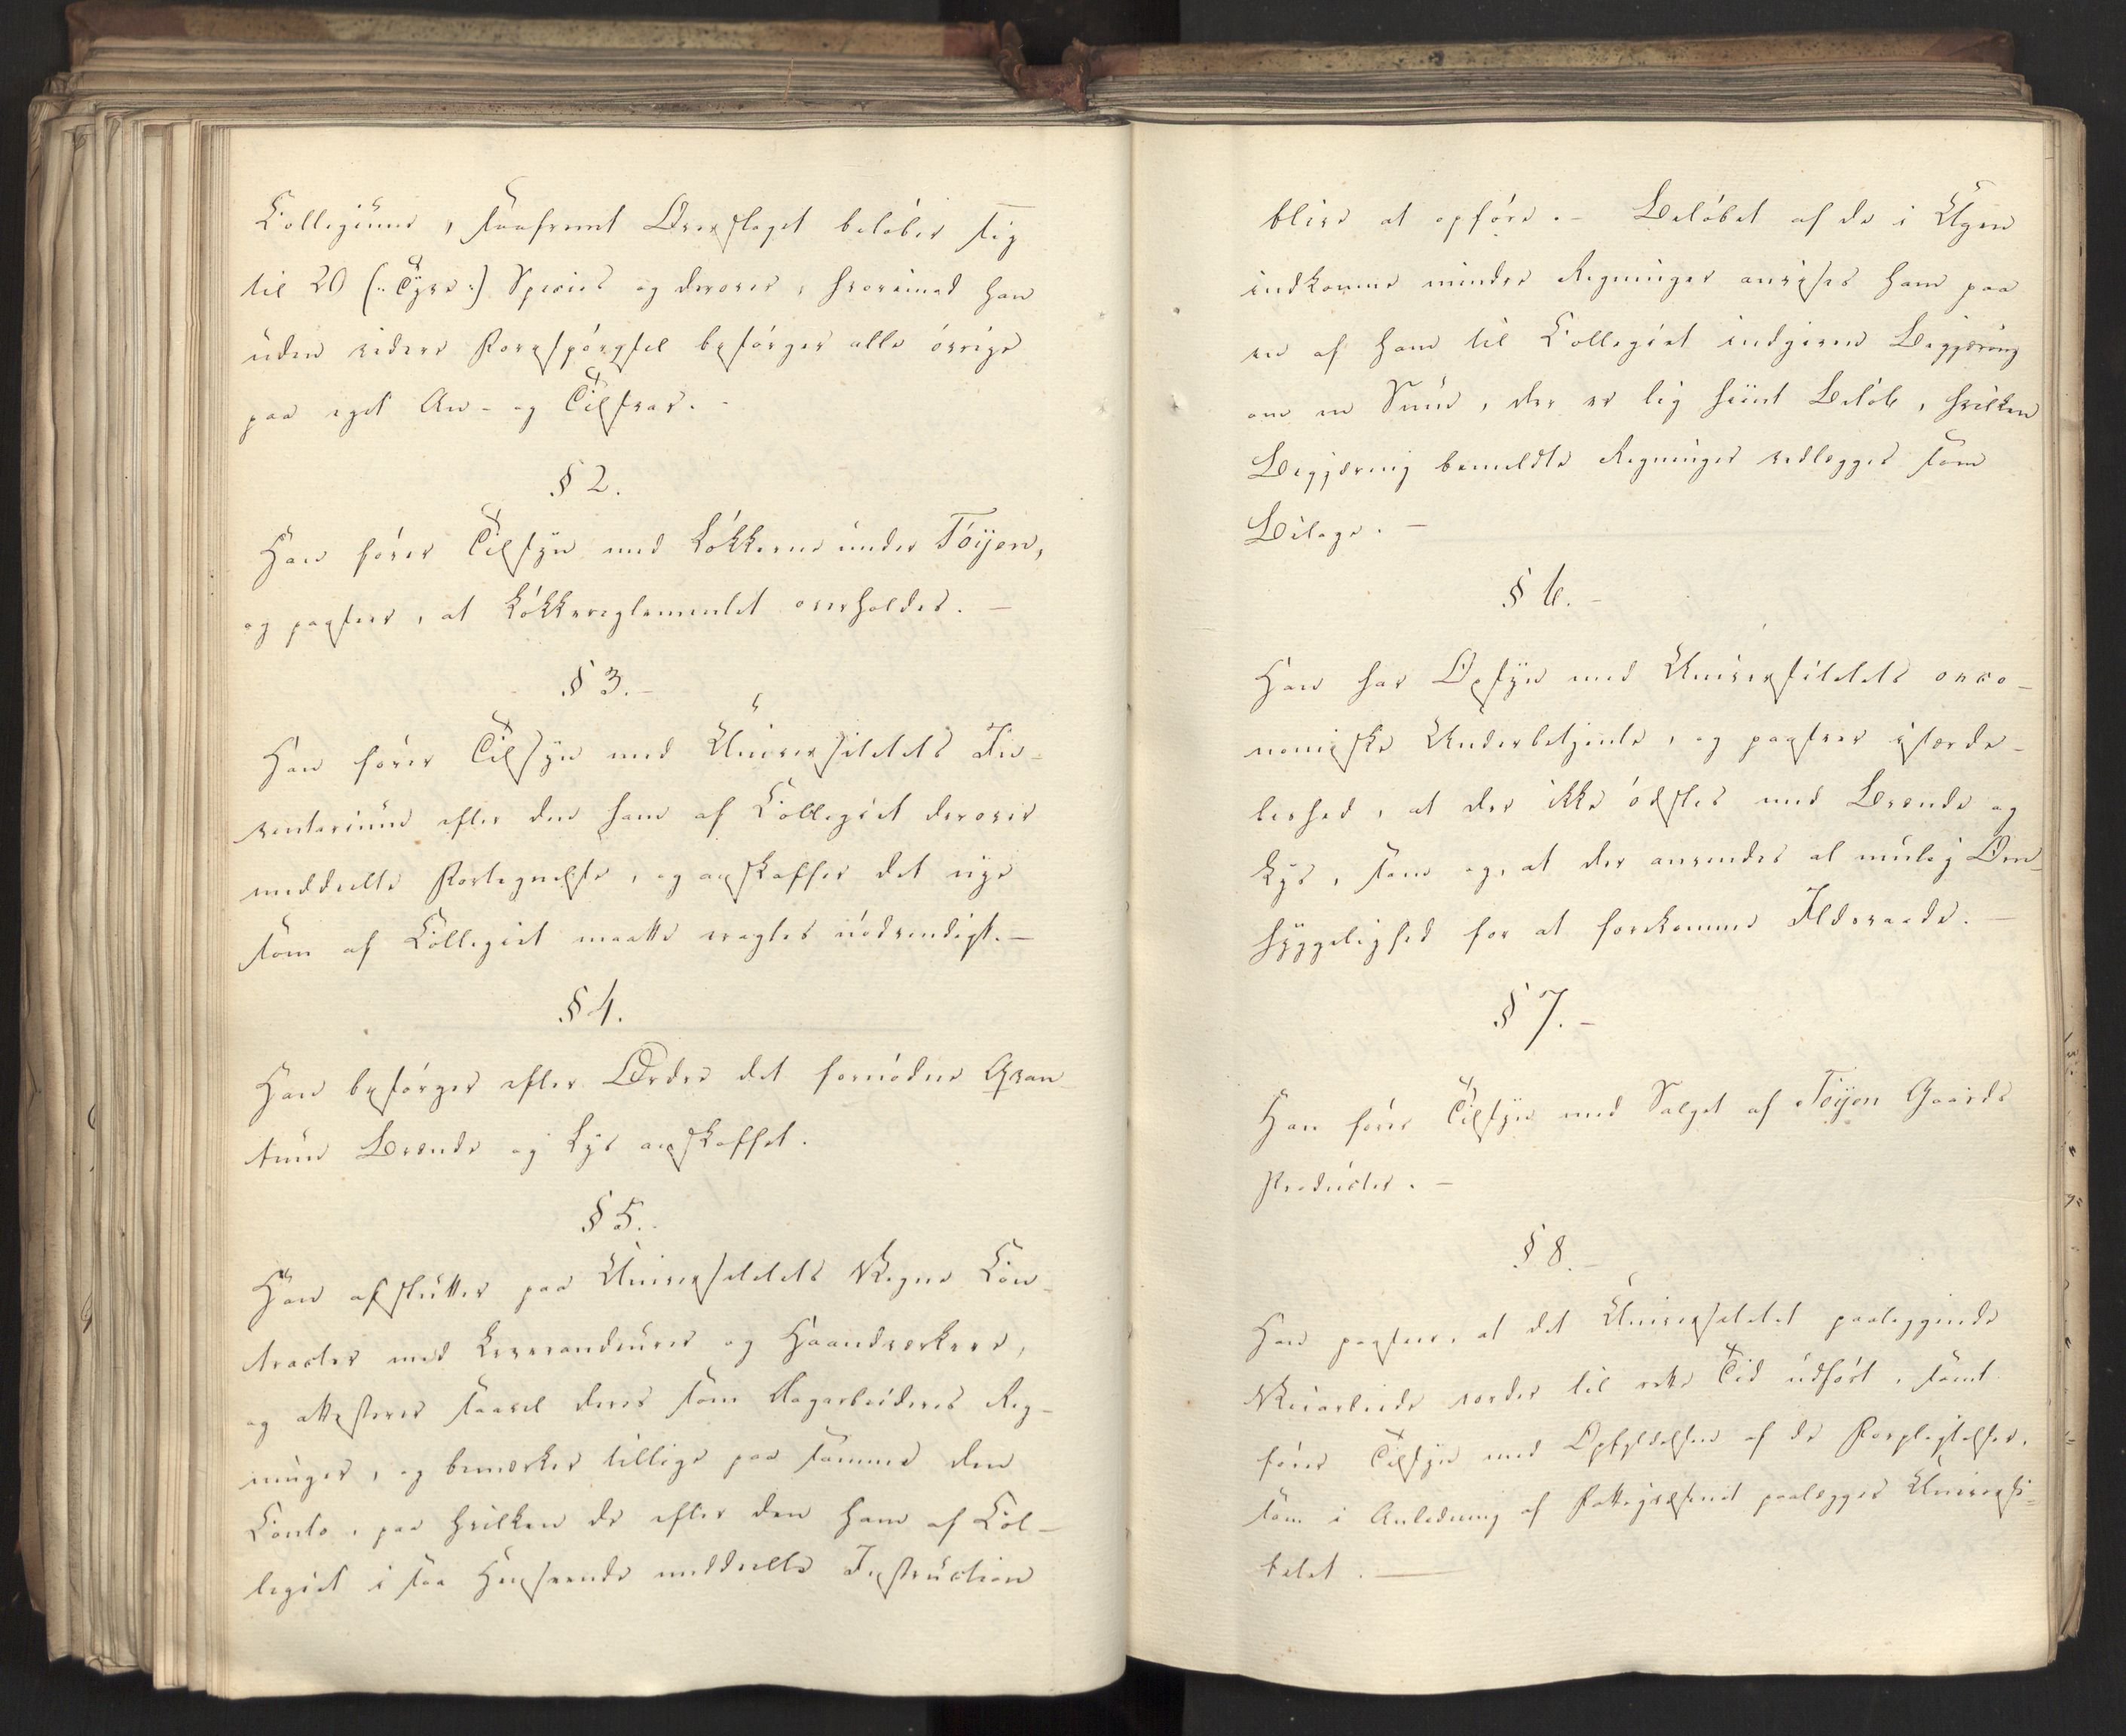 Collegium, saafremt Overslaget beløber sig
til 20 (: Tyve :) Species og derover, hvorimod han
uden videre Forespørgsel besørger alle øvrige
paa eget An- og Tilsvar. -
§ 2.
Han fører Tilsyn med Løkkerne under Tøijen,
og paaseer, at Løkkereglementet overholdes. -
§ 3. -
Han fører Tilsyn med Universitetets In-
ventarium efter den ham af Collegiet derover
meddeelte Fortegnelse, og anskaffer det nye
som af Collegiet maatte eragtes nødvendigt. -
§ 4.
Han besørger efter Ordre det fornødne Qvan
tum Brænde og Lys anskaffet.
§ 5.
Han afslutter paa Universitetets Vegne Con-
tracter med Leverandeurer og Haandværkere,
og attesterer saavel deres som Dagarbeideres Reg-
ninger, og bemærker tillige paa samme den
Conto, paa hvilken de efter den ham af Col-
legiet i saa Henseende meddeelte Instruction
blive at opføre. - Beløbet af de i Ugen
indkomne mindre Regninger anvises ham paa
en af ham til Collegiet indgiven Begjæring
om en Sum, der er lig hiint Beløb, hvilken
Begjæring bemeldte Regninger vedlægges som
Bilage. -
§ 6. -
Han har Opsyn med Universitetets oeco-
nomiske Underbetjente, og paaseer isærde-
leshed, at der ikke ødsles med Brænde og
Lys, som og, at der anvendes al mulig Om-
hyggelighed for at forekomme Ildsvaade. -
§ 7. -
Han fører Tilsyn med Salget af Tøijen Gaards
Producter. -
§ 8. -
Han paaseer, at det Universitetet paaliggende
Veiarbeide vorder til rette Tid udført, samt
fører Tilsyn med Opfyldelsen af de Forpligtelser,
som i Anledning af Fattigvæsenet paalægges Universi-
tetet. -